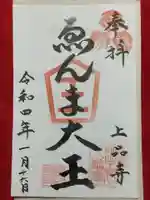 奉拝
ゑんま大王
上品寺
令和四年一月十六日